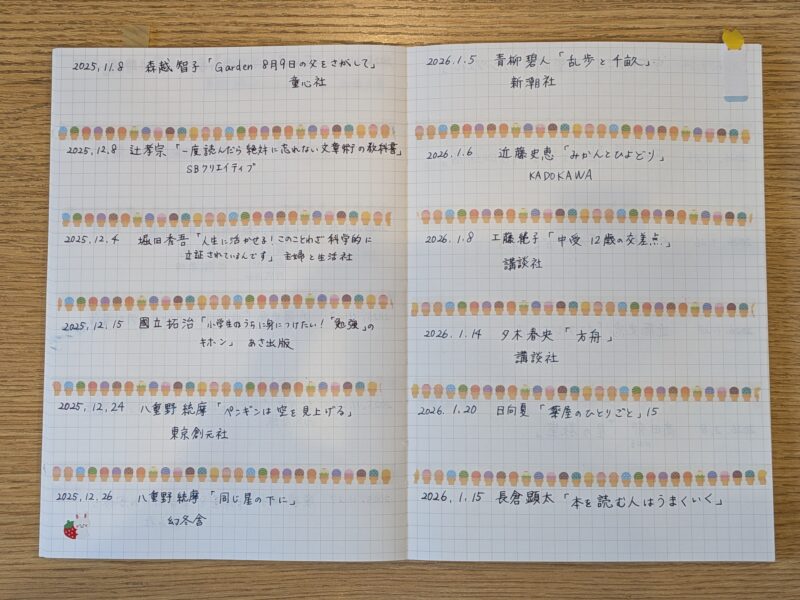 2025.11.8 森越智子「Garden 8月9日の父をさがして」
童心社
2025.12.8 辻孝宗「一度読んだら絶対に忘れない文章術の教科書」
SBクリエイティブ
2025.12.4 堀田秀吾「人生に活かせる!このことわざ科学的に
立証されているんです」 主婦と生活社
2025.12.15 國立拓治「小学生のうちに身につけたい!「勉強」の
キホン」 あさ出版
2025.12.24 八重野統摩「ペンギンは空を見上げる」
東京創元社
2025.12.26 八重野統摩「同じ星の下に」
幻冬舎
2026.1.5 青柳碧人「乱歩と千畝」
新潮社
2026.1.6 近藤史恵「みかんとひよどり」
KADOKAWA
2026.1.8 工藤純子「中受 12歳の交差点」
講談社
2026.1.14 夕木春央「方舟」
講談社
2026.1.20 日向夏「薬屋のひとりごと」15
2026.1.15 長倉顕太「本を読む人はうまくいく」